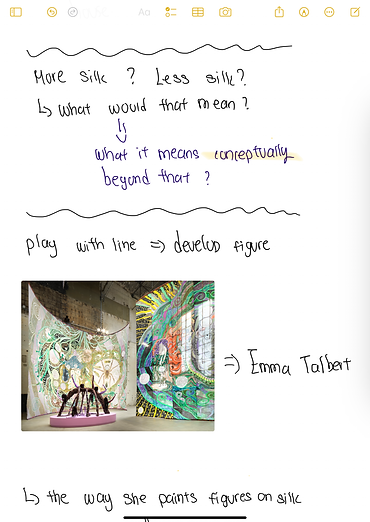 Aa
More silk ? Less silk?
↳ what would that mean ?
what it means conceptually
beyond that ?
play with line => develop figure
=> Emma Talbert
↳ the way she paints figures on silk